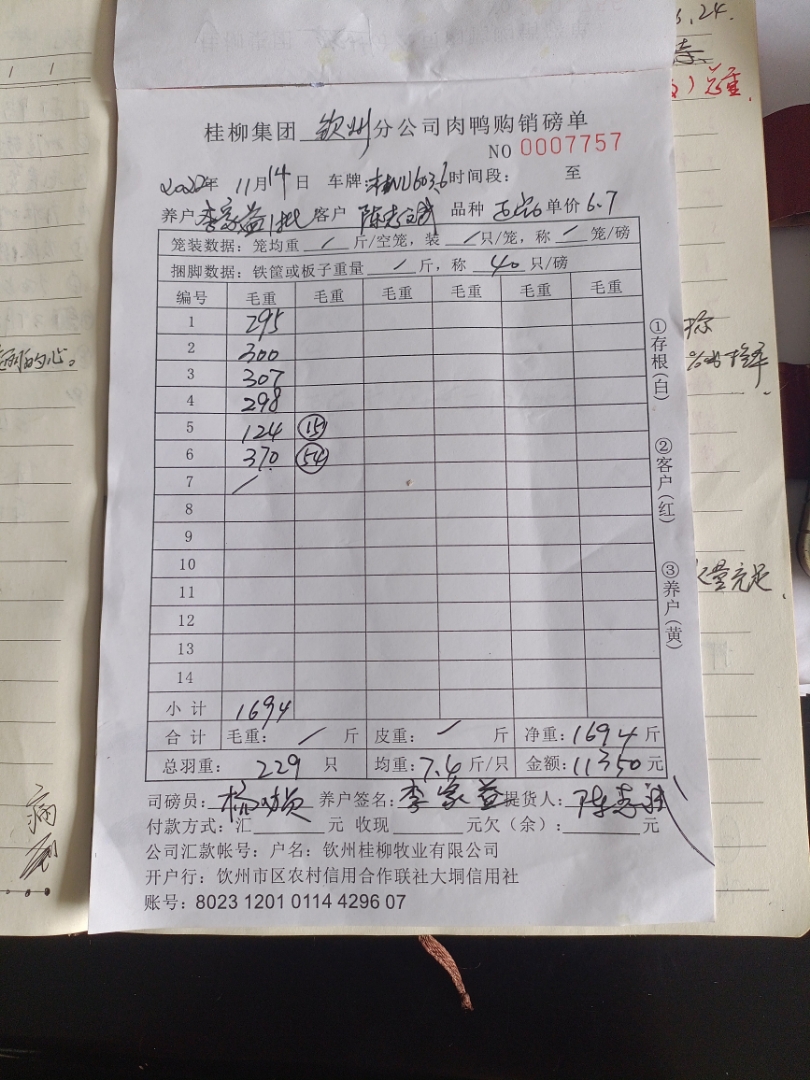 桂柳集团 钦州 分公司肉鸭购销磅单
NO 0007757
2022年 11月14日 车牌: 时间段: 至
养户 李家益 1批 客户 陈志 品种 单价 6.7
笼装数据: 笼均重 / 斤/空笼, 装 / 只/笼, 称 / 笼/磅
捆脚数据: 铁筐或板子重量 / 斤, 称 40 只/磅
编号 毛重 毛重 毛重 毛重 毛重 毛重
1 295
2 300
3 307
4 298
5 124 15
6 370 54
7 /
8
9
10
11
12
13
14
小计 1694
合计 毛重: / 斤 皮重: / 斤 净重: 1694 斤
总羽重: 229 只 均重: 7.4 斤/只 金额: 11350 元
司磅员: 养户签名: 李家益 提货人: 陈志
付款方式: 汇 元 收现 元欠(余): 元
公司汇款帐号: 户名: 钦州桂柳牧业有限公司
开户行: 钦州市区农村信用合作联社大垌信用社
账号: 8023 1201 0114 4296 07
①存根(白)
②客户(红)
③养户(黄)
.24.
量充足.
病